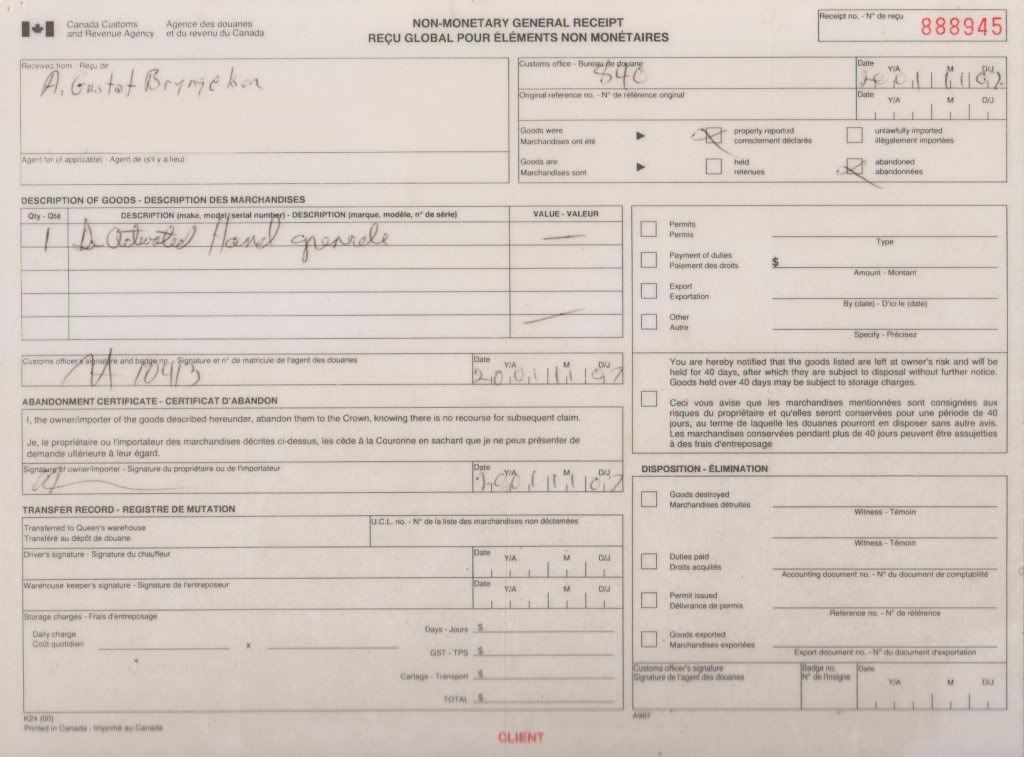 Canada Customs and Revenue Agency
Agence des douanes et du revenu du Canada
NON-MONETARY GENERAL RECEIPT
REÇU GLOBAL POUR ÉLÉMENTS NON MONÉTAIRES
Receipt no. - N° de reçu
888945
Received from - Reçu de
A. Gustaf
Agent for (if applicable) - Agent de (s'il y a lieu)
Customs office - Bureau de douane
840
Date Y/A M D/J
Original reference no. - N° de référence original
Date Y/A M D/J
Goods were
Marchandises ont été
properly reported
correctement déclarés
unlawfully imported
illégalement importées
Goods are
Marchandises sont
held
retenues
abandoned
abandonnées
DESCRIPTION OF GOODS - DESCRIPTION DES MARCHANDISES
Qty - Qté DESCRIPTION (make, model, serial number) - DESCRIPTION (marque, modèle, n° de série) VALUE - VALEUR
1 De Activated Hand grenade —
—
Permits
Permis
Type
Payment of duties
Paiement des droits
$
Amount - Montant
Export
Exportation
By (date) - D'ici le (date)
Other
Autre
Specify - Précisez
Customs officer's signature and badge no. - Signature et n° de matricule de l'agent des douanes
10413
Date Y/A M D/J
You are hereby notified that the goods listed are left at owner's risk and will be
held for 40 days, after which they are subject to disposal without further notice.
Goods held over 40 days may be subject to storage charges.
Ceci vous avise que les marchandises mentionnées sont consignées aux
risques du propriétaire et qu'elles seront conservées pour une période de 40
jours, au terme de laquelle les douanes pourront en disposer sans autre avis.
Les marchandises conservées pendant plus de 40 jours peuvent être assujetties
à des frais d'entreposage
ABANDONMENT CERTIFICATE - CERTIFICAT D'ABANDON
I, the owner/importer of the goods described hereunder, abandon them to the Crown, knowing there is no recourse for subsequent claim.
Je, le propriétaire ou l'importateur des marchandises décrites ci-dessus, les cède à la Couronne en sachant que je ne peux présenter de
demande ultérieure à leur égard.
Signature of owner/importer - Signature du propriétaire ou de l'importateur
Date Y/A M D/J
TRANSFER RECORD - REGISTRE DE MUTATION
Transferred to Queen's warehouse
Transféré au dépôt de douane
U.C.L. no. - N° de la liste des marchandises non déclamées
Driver's signature - Signature du chauffeur
Date Y/A M D/J
Warehouse keeper's signature - Signature de l'entreposeur
Date Y/A M D/J
Storage charges - Frais d'entreposage
Daily charge
Coût quotidien
x
Days - Jours $
GST - TPS $
Cartage - Transport $
TOTAL $
DISPOSITION - ÉLIMINATION
Goods destroyed
Marchandises détruites
Witness - Témoin
Witness - Témoin
Duties paid
Droits acquités
Accounting document no. - N° du document de comptabilité
Permit issued
Délivrance de permis
Reference no. - N° de référence
Goods exported
Marchandises exportées
Export document no. - N° du document d'exportation
Customs officer's signature
Signature de l'agent des douanes
Badge no.
N° de l'insigne
Date Y/A M D/J
K24 (00)
Printed in Canada - Imprimé au Canada
A967
CLIENT